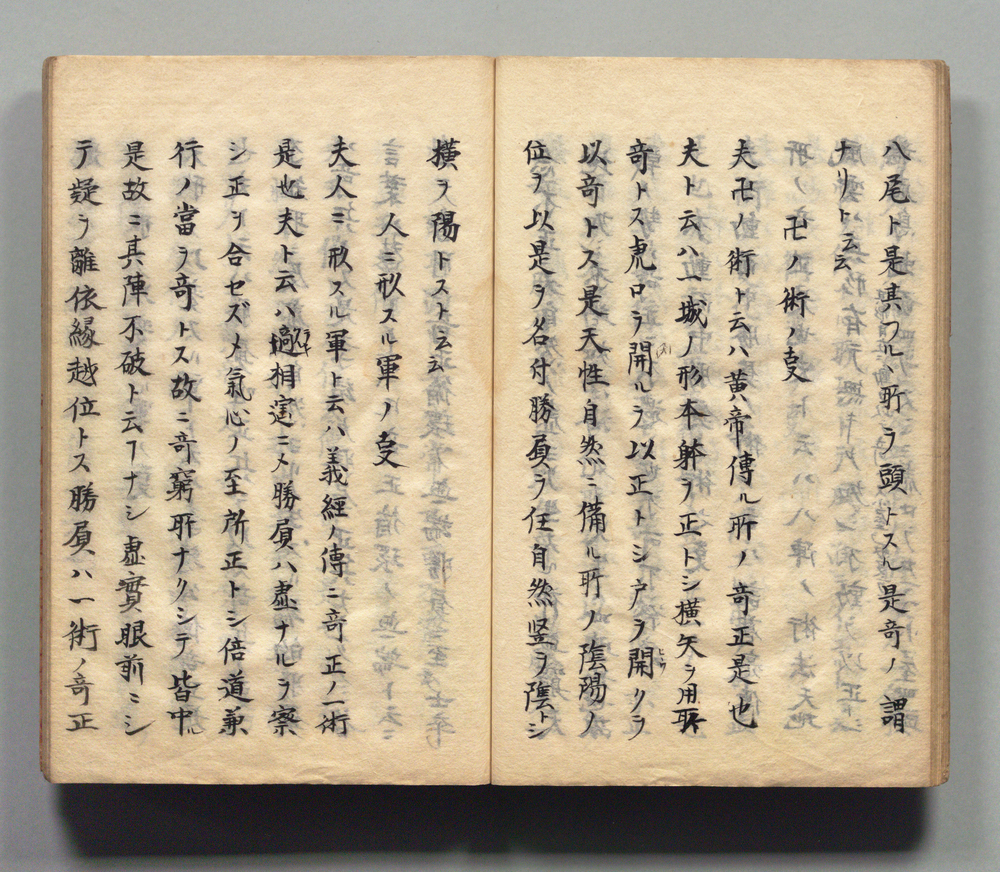 八尾ト是其フルヽ所ヲ頭トスル是奇ノ謂
ナリト云云
卍ノ術ノ叓
夫卍ノ術ト云ハ黄帝傳ル所ノ奇正是也
夫ト云ハ一城ノ形本躰ヲ正トシ横矢ヲ用耶
奇トス虎口ヲ開ルヲ以正トシ戸ヲ開クヲ
以奇トス是天性自然ニ備ル所ノ陰陽ノ
位ヲ以是ヲ名付勝負ヲ任自然竖ヲ陰トシ
横ヲ陽トスト云云
人ニ形スル軍ノ叓
夫人ニ形スル軍ト云ハ義經ノ傳ニ奇正ノ一術
是也夫ト云ハ過相違ニメ勝負ハ虚ナルヲ察
シ正ヲ合セズメ氣心ノ至所正トシ倍道兼
行ノ當ヲ奇トス故ニ奇窮所ナクシテ皆中ル
是故ニ其陣不破ト云フナシ虚實眼前ニシ
テ疑ヲ離依縁越位トス勝負ハ一術ノ奇正